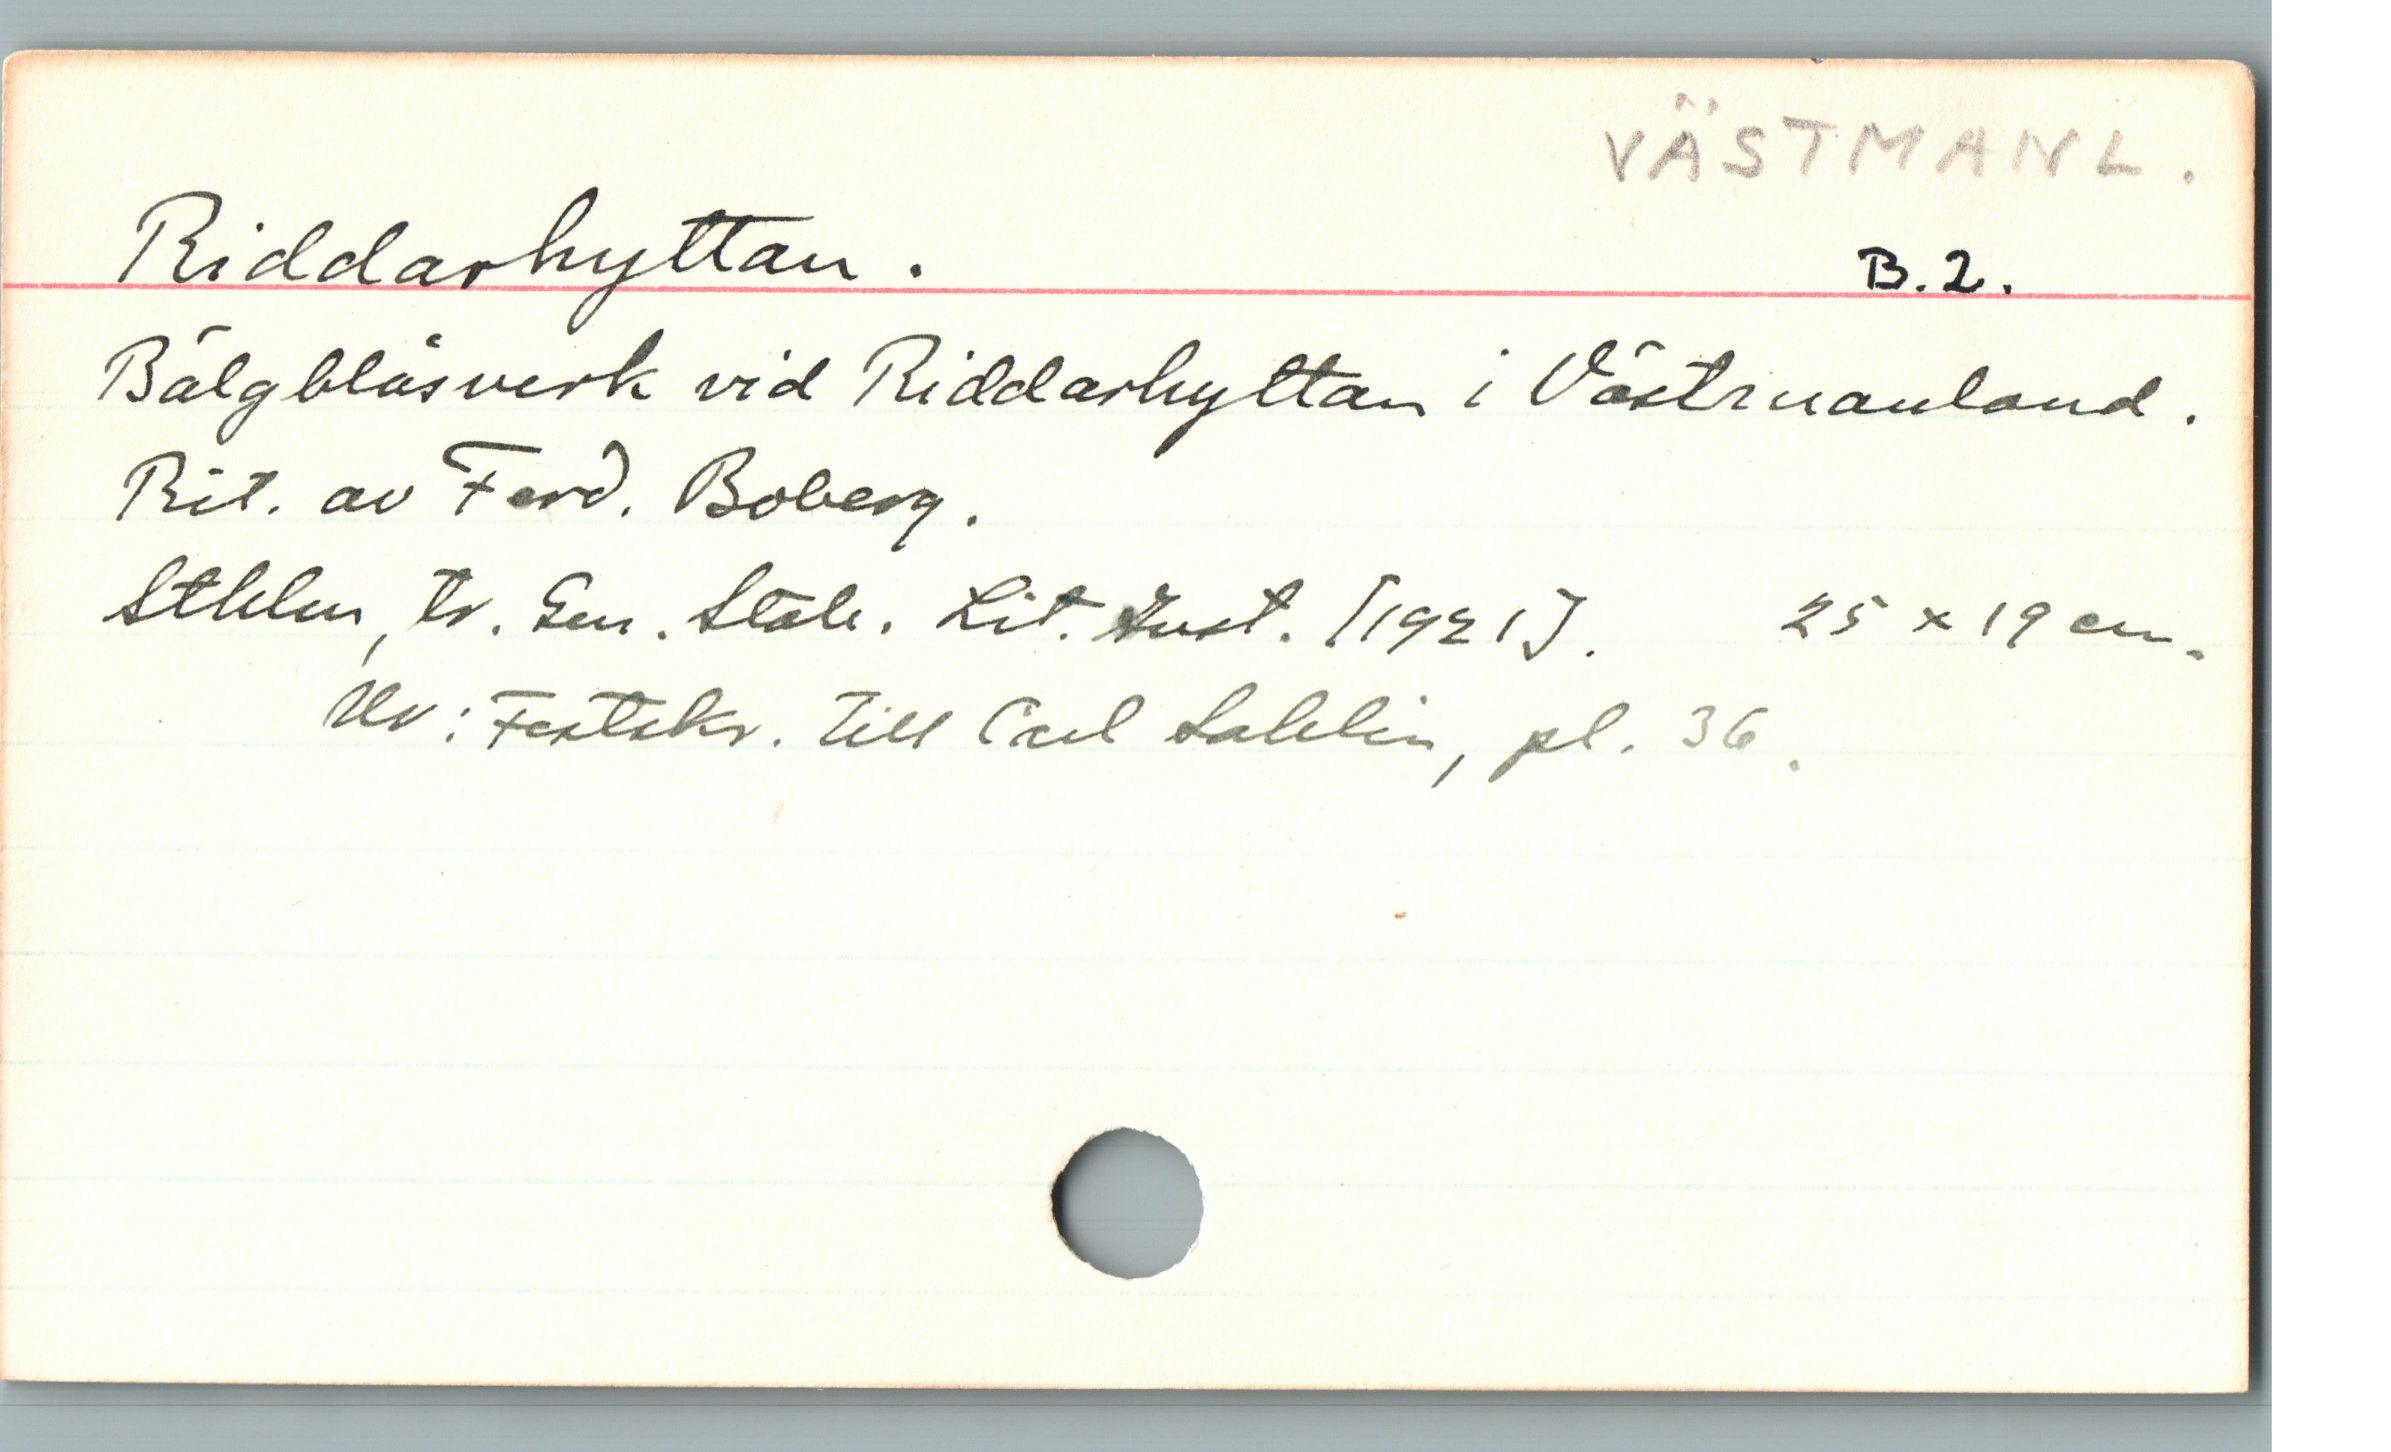 VÄSTMANL.
Riddarhyttan.
B.2.
Bälgblåsverk vid Riddarhyttan i Västmanland.
Rit. av Ferd. Boberg.
Sthlm, tr. Gen. Stab. Lit. Inst. [1921]. 25 x 19 cm.
Ur: Festskr. till Carl Sahlin, pl. 36.